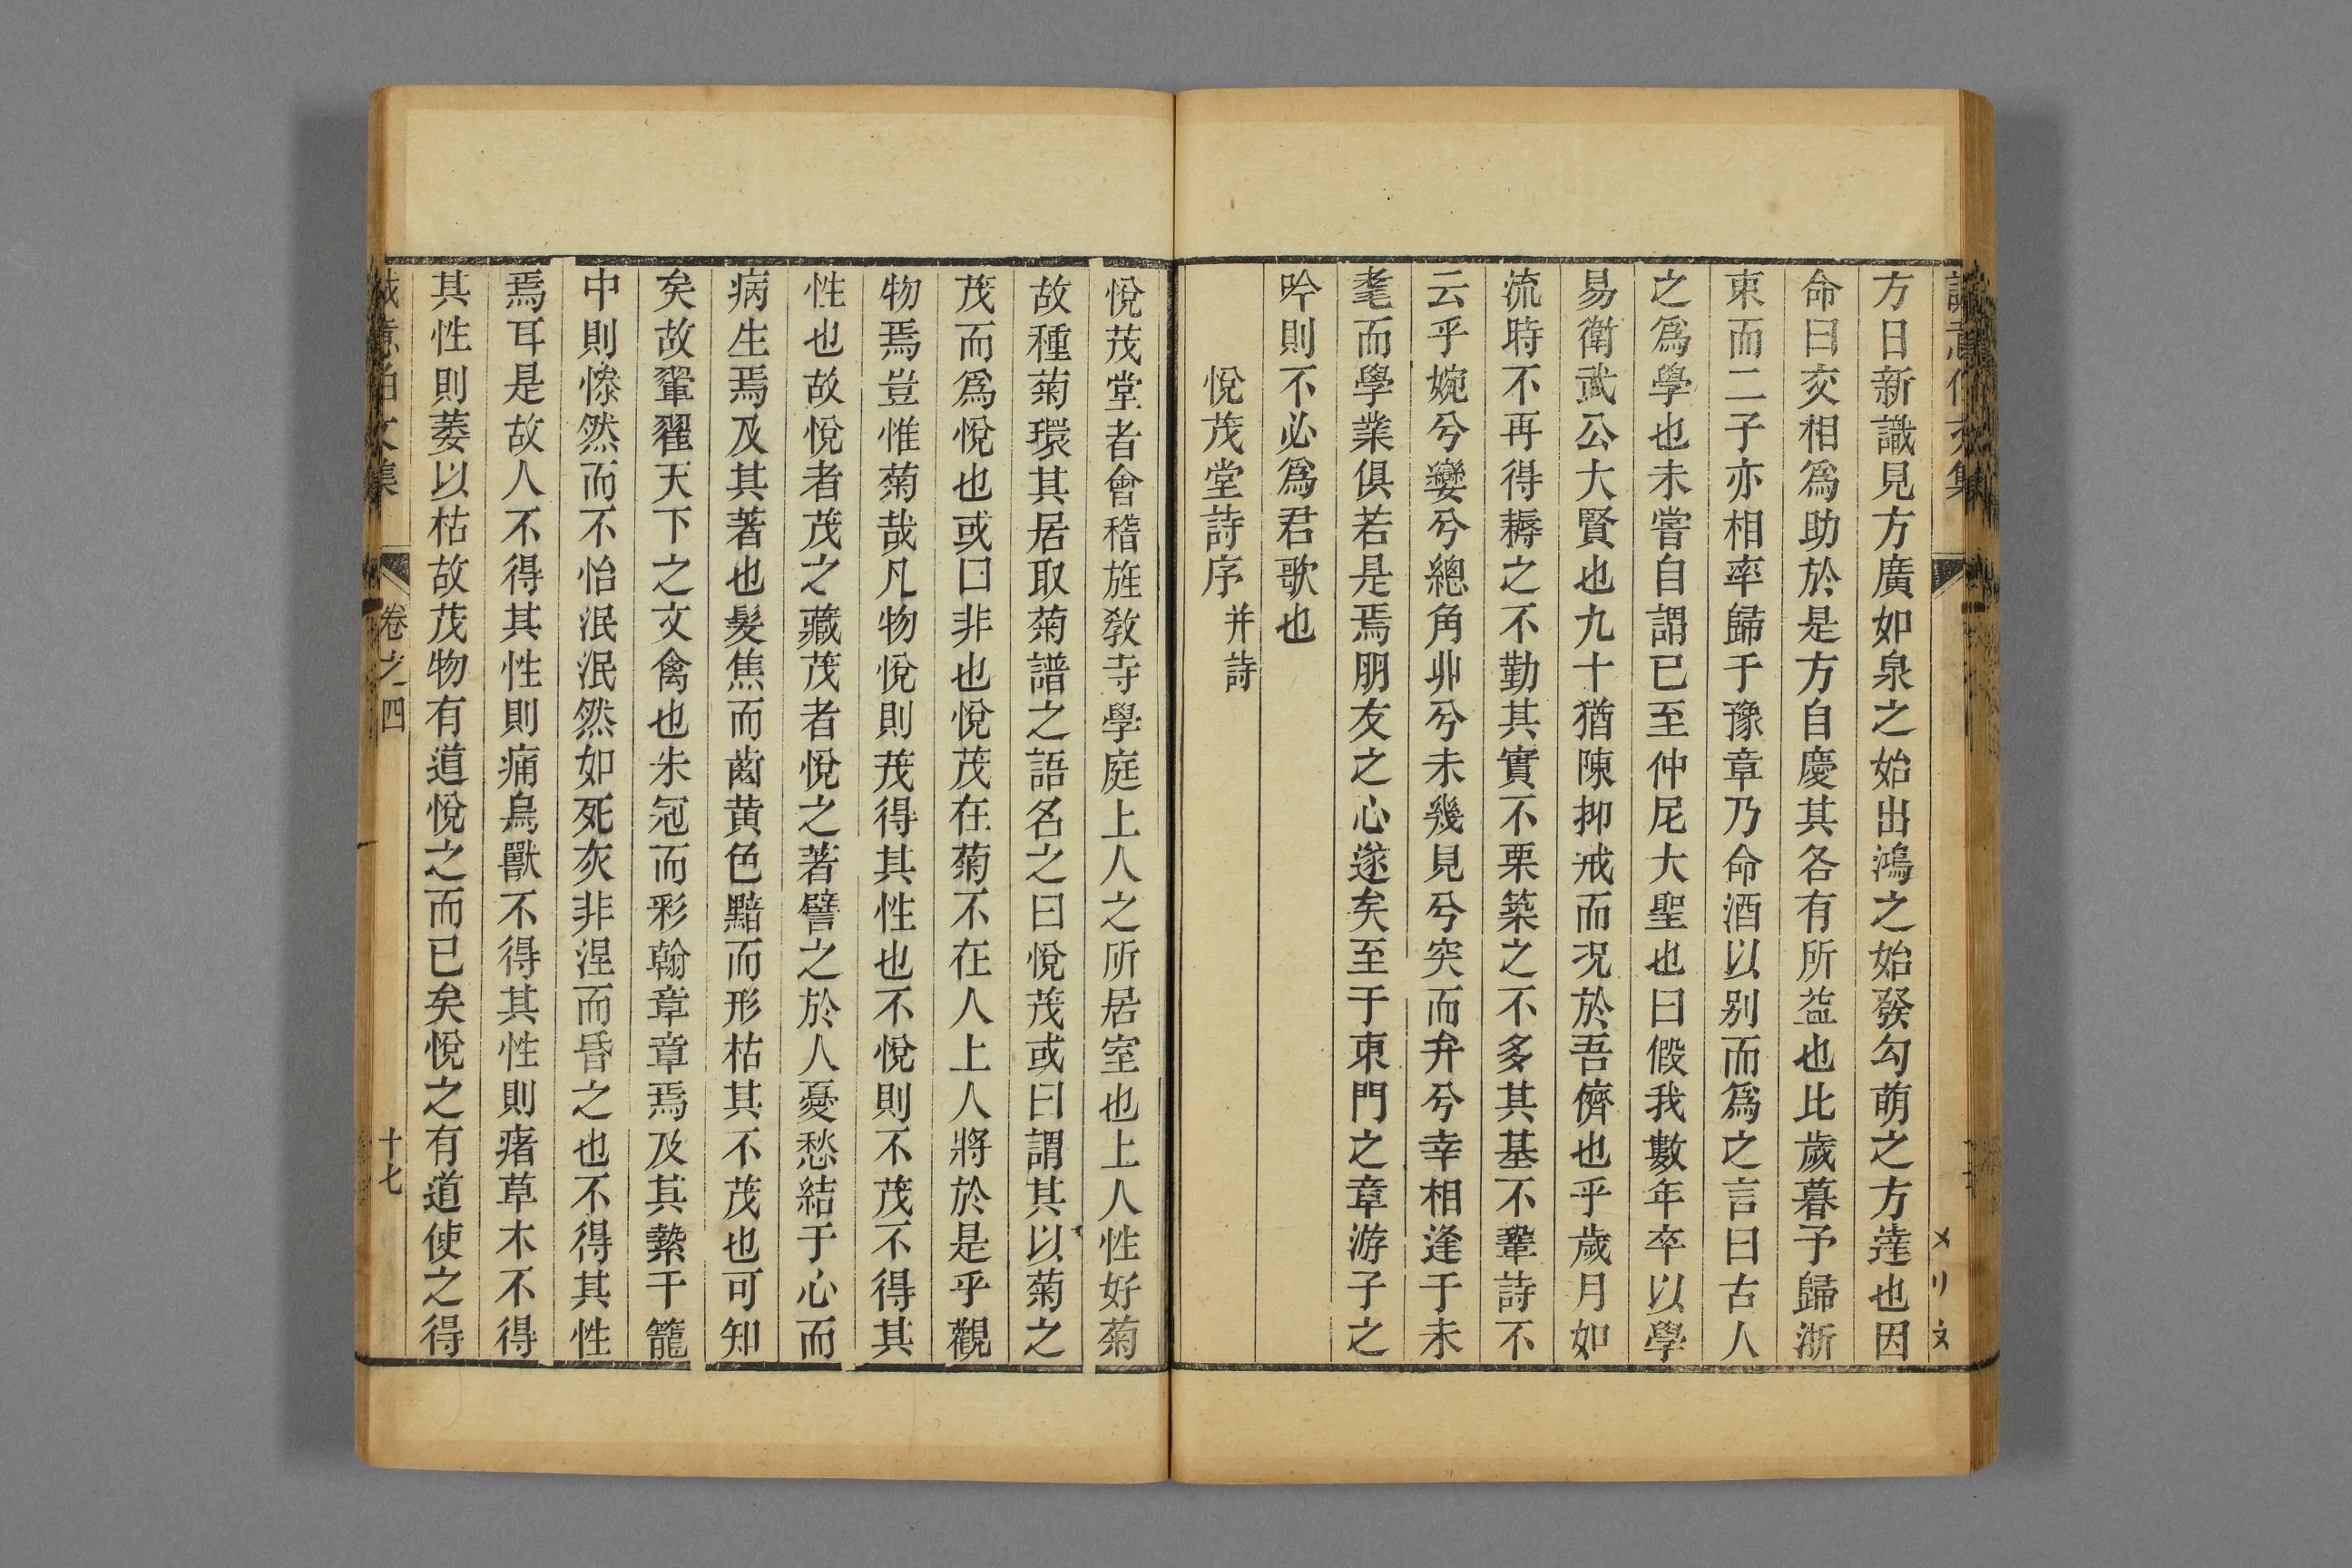 誠意伯文集
方日新識見方廣如泉之始出鴻之始發勾萌之方達也因
命曰交相爲助於是方自慶其各有所益也比歲暮予歸浙
東而二子亦相率歸于豫章乃命酒以别而爲之言曰古人
之爲學也未嘗自謂已至仲尼大聖也曰假我數年卒以學
易衛武公大賢也九十猶陳抑戒而况於吾儕也乎歲月如
流時不再得耨之不勤其實不栗築之不多其基不鞏詩不
云乎婉兮孌兮總角丱兮未幾見兮突而弁兮幸相逢于未
耄而學業俱若是焉朋友之心遂矣至于東門之章游子之
吟則不必爲君歌也
悅茂堂詩序并詩
悅茂堂者會稽旌教寺學庭上人之所居室也上人性好菊
故種菊環其居取菊譜之語名之曰悅茂或曰謂其以菊之
茂而爲悅也或曰非也悅茂在菊不在人上人將於是乎觀
物焉豈惟菊哉凡物悅則茂得其性也不悅則不茂不得其
性也故悅者茂之藏茂者悅之著譬之於人憂愁結于心而
病生焉及其著也髮焦而齒黄色黯而形枯其不茂也可知
矣故翬翟天下之文禽也朱冠而彩翰章章焉及其縶于籠
中則慘然而不怡泯泯然如死灰非涅而昏之也不得其性
焉耳是故人不得其性則痛鳥獸不得其性則瘏草木不得
其性則萎以枯故茂物有道悅之而已矣悅之有道使之得
誠意伯文集 卷之四 十七